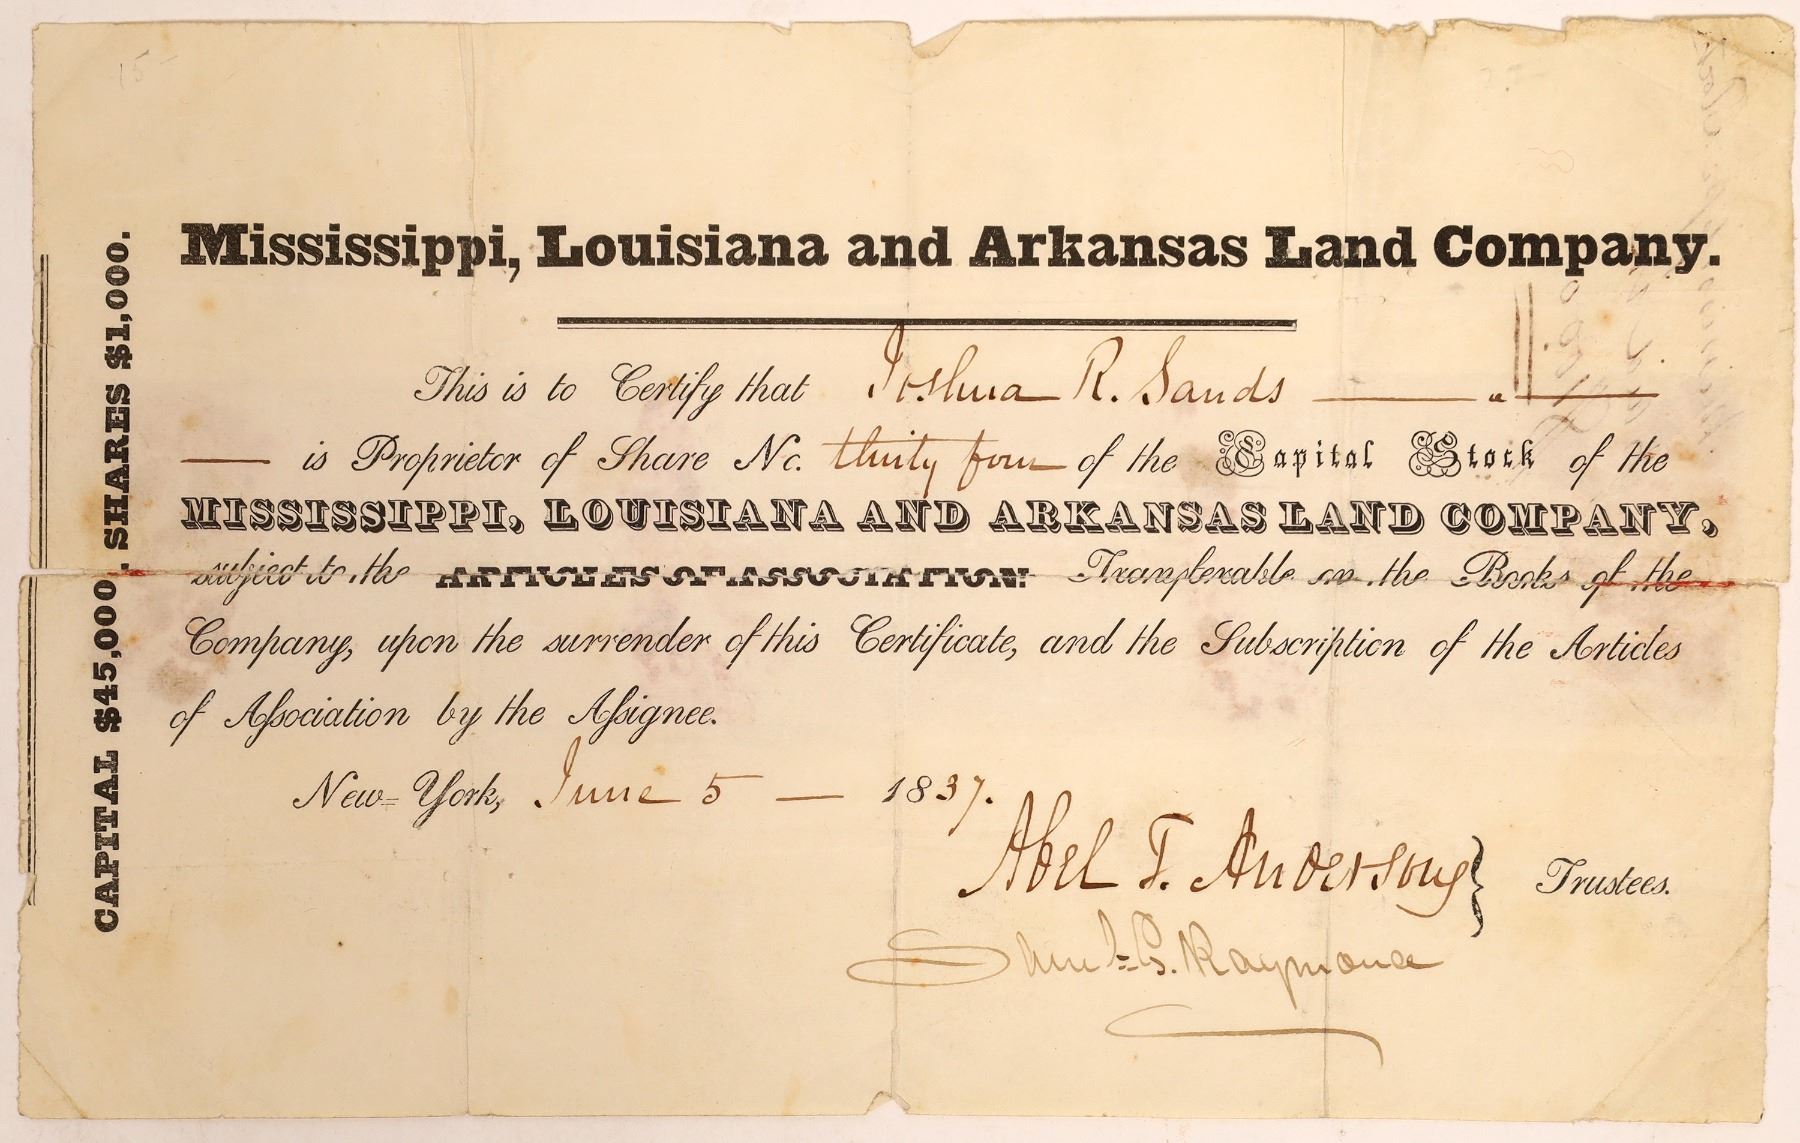 15-
Mississippi, Louisiana and Arkansas Land Company.
This is to Certify that Joshua R. Sands
is Proprietor of Share No. thirty four of the Capital Stock of the
MISSISSIPPI, LOUISIANA AND ARKANSAS LAND COMPANY,
subject to the ARTICLES OF ASSOCIATION: Transferable on the Books of the
Company, upon the surrender of this Certificate, and the Subscription of the Articles
of Association by the Assignee.
New-York, June 5 1837.
Abel T. Anderson
Trustees.
G. Raymond
CAPITAL $45,000. SHARES $1,000.